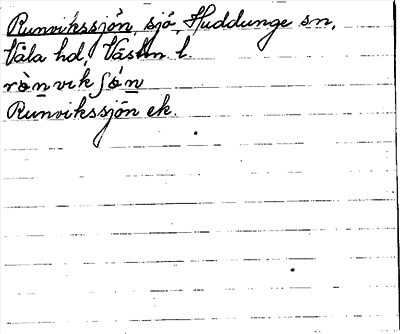 Runvikssjön, sjö, Huddunge sn,
Våla hd, Västm l.
rònvikʃǿn
Runvikssjön ek.